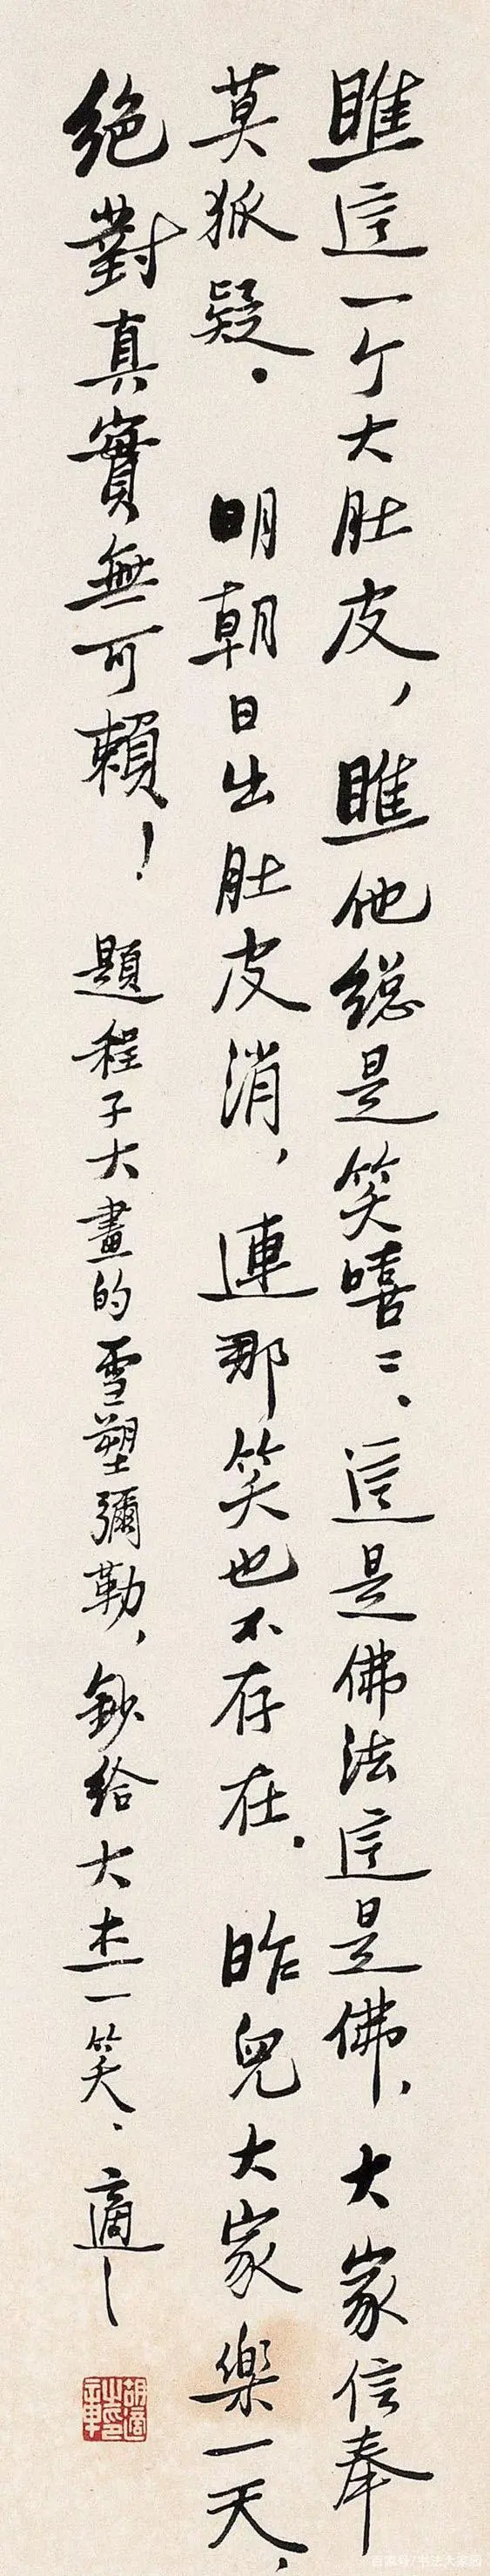 瞧這一个大肚皮，瞧他總是笑嘻〻．這是佛法這是佛，大家信奉
莫狐疑．明朝日出肚皮消，連那笑也不存在．昨兒大家樂一天，
絕對真實無可賴！題程子大畫的雪塑彌勒，鈔給大杰一笑．適